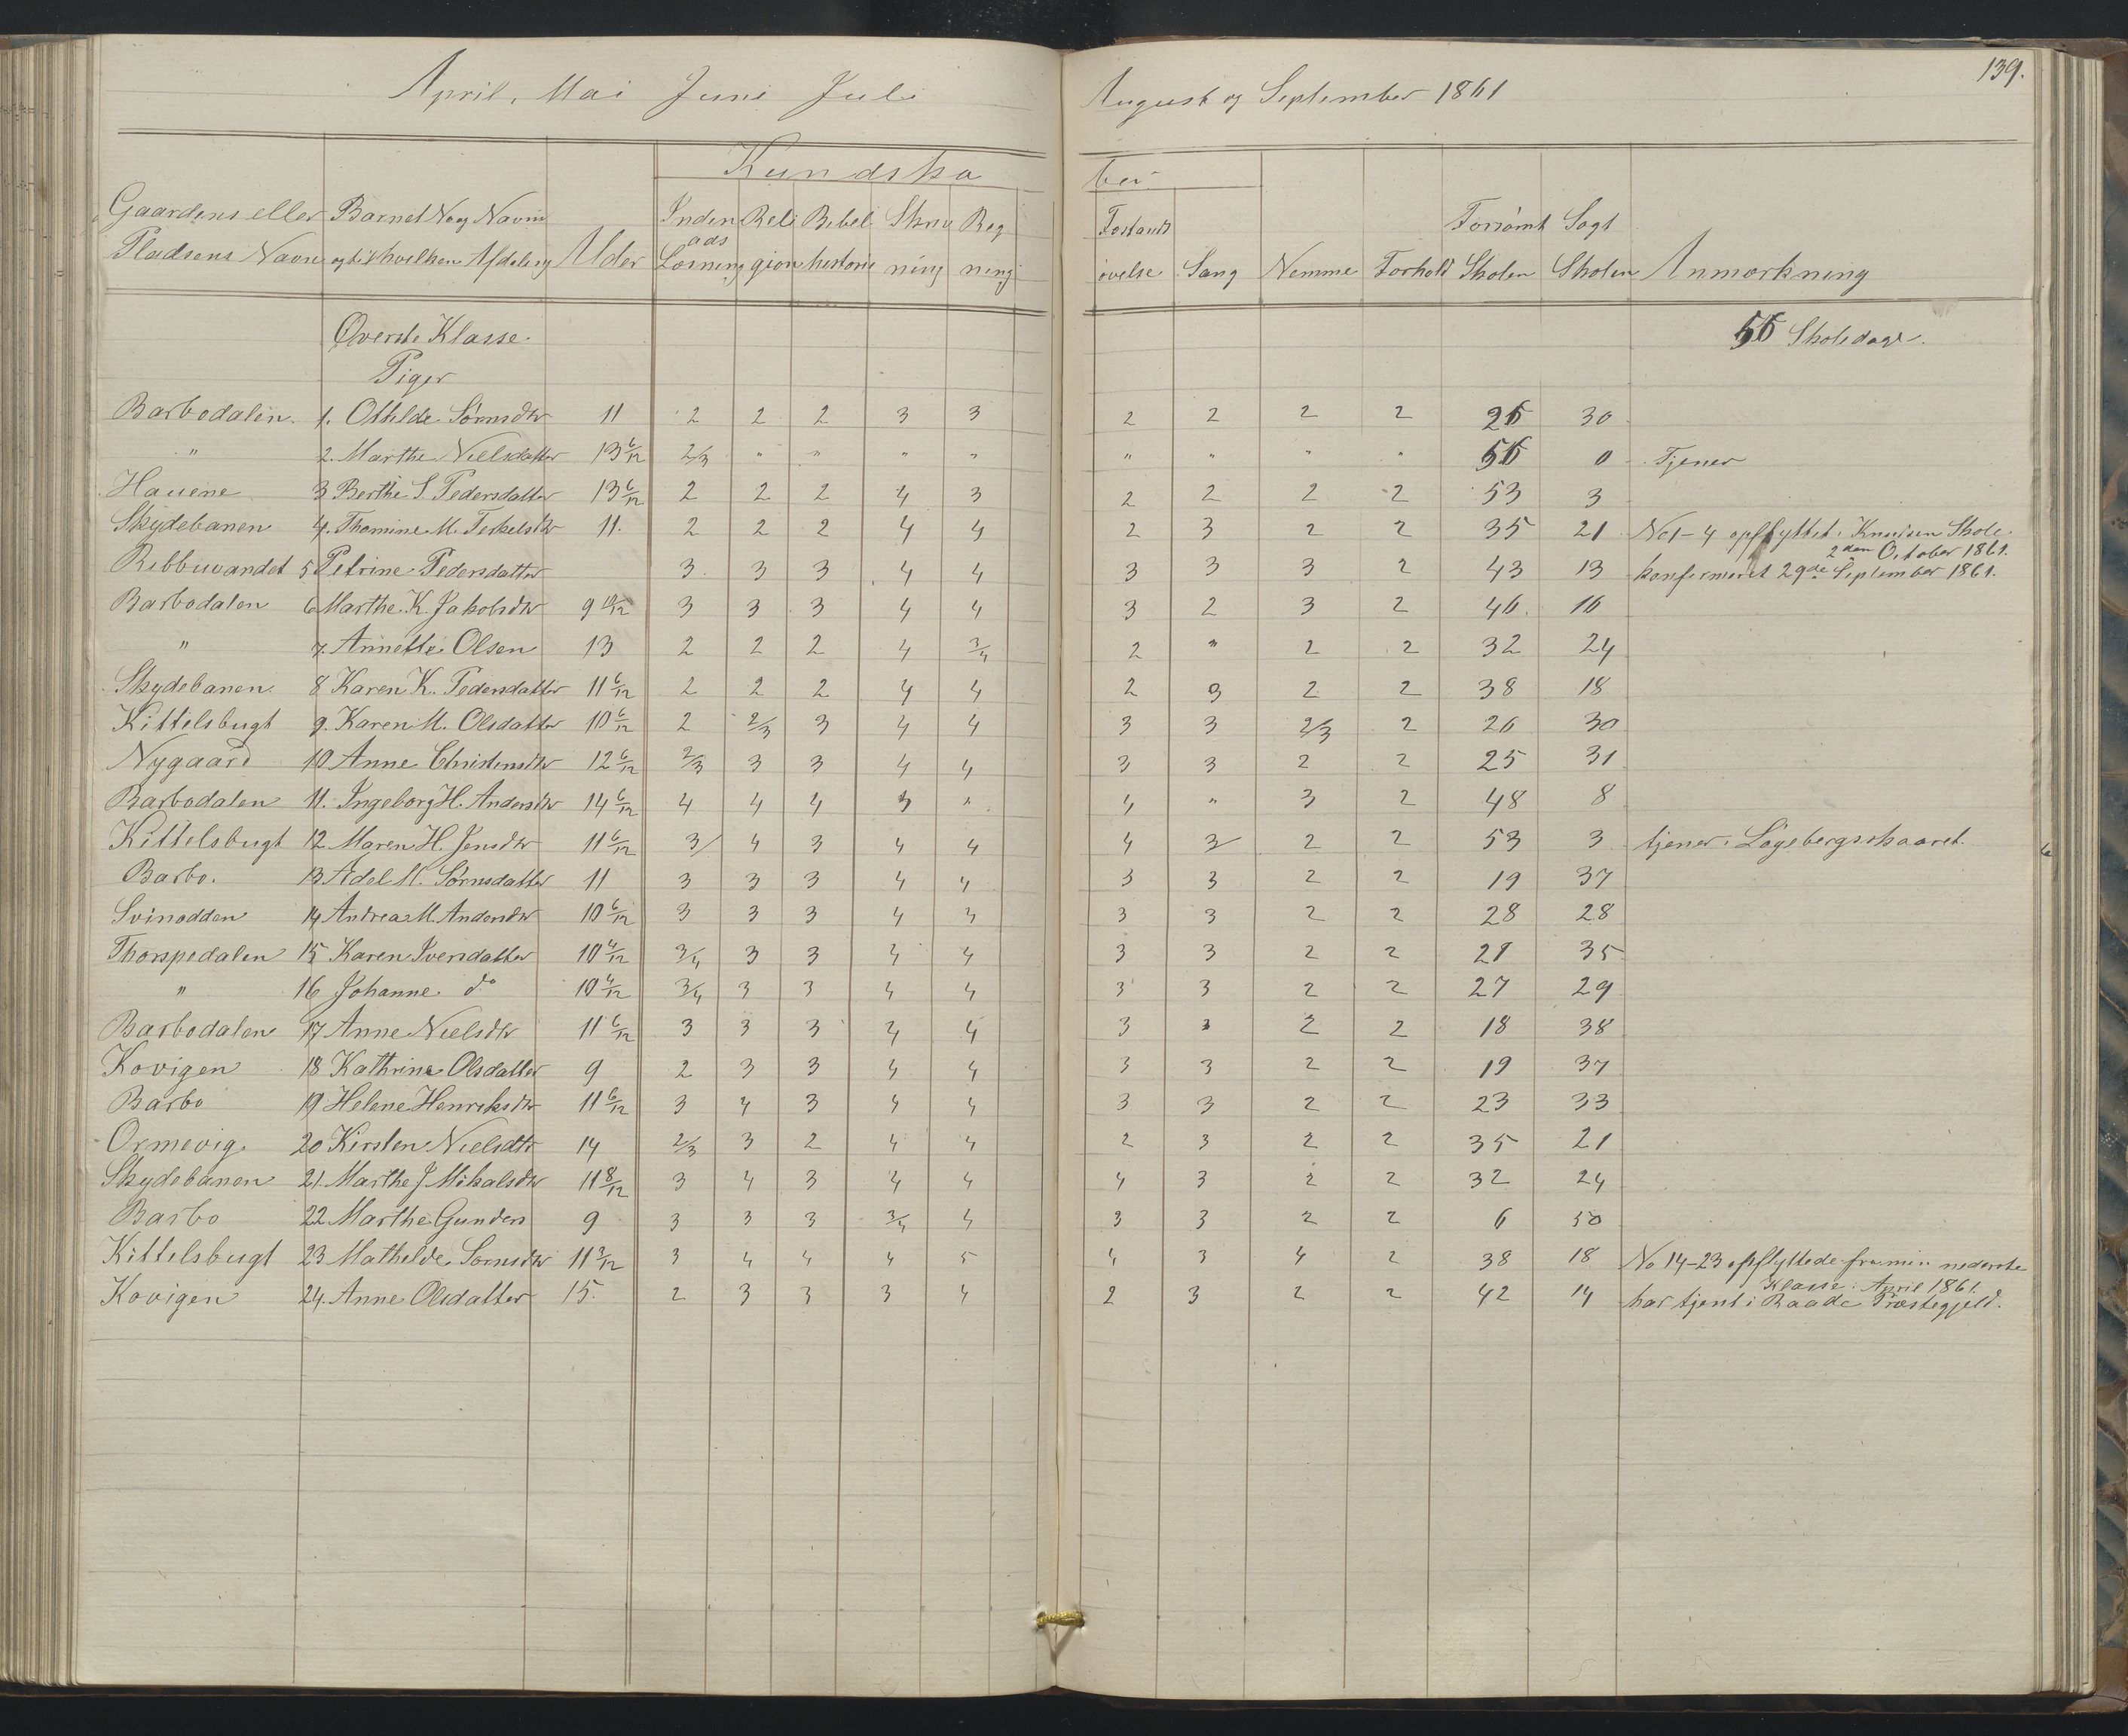 April, Mai Juni Juli August og September 1861
139.
Kundskaber
Gaardens eller Pladsens Navn | Barnets No og Navn og til hvilken Afdeling | Alder | Indenads Læsning | Religion | Bibelhistorie | Skrivning | Regning | Forstands øvelse | Sang | Nemme | Forhold | Forsømt Skolen | Søgt Skolen | Anmærkning
Øverste Klasse. 56 Skoledage.
Piger
Barbodalen. 1. Othilde Sørnsdtr 11 2 2 2 3 3 2 2 2 2 26 30
" 2. Marthe Nielsdatter 13 6/12 2/3 " " " " " " " " 56 0 Tjener
Hauene 3 Berthe S. Pedersdatter 13 6/12 2 2 2 4 3 2 2 2 2 53 3
Skydebanen 4. Thomine M. Terkelsdtr 11. 2 2 2 4 4 2 3 2 2 35 21 No 1-4 opflyttet i Knudsen Skole 2den October 1861.
Ribbuvandet 5 Petrine Pedersdatter 3 3 3 4 4 3 3 3 2 43 13 konfirmeret 29de September 1861.
Barbodalen 6 Marthe K. Jakobsdtr 9 10/12 3 3 3 4 4 3 2 3 2 40. 16
" 7. Annette Olsen 13 2 2 2 4 3/4 2 " 2 2 32 24
Skydebanen. 8 Karen K. Pedersdatter 11 6/12 2 2 2 4 4 2 3 2 2 38 18
Kittelsbugt 9. Karen M. Olsdatter 10 6/12 2 2/3 3 4 4 3 3 2/3 2 26 30
Nygaard 10 Anne Christensdtr 12 6/12 2/3 3 3 4 4 3 3 2 2 25 31
Barbodalen 11. Ingeborg H. Andersdtr 14 6/12 4 4 4 5 " 4 " 3 2 48 8
Kittelsbugt 12 Maren H. Jensdtr 11 6/12 3 4 3 4 4 4 3 2 2 53 3 tjener i Løgebergsskaaret.
Barbo. 13 Adel M. Sørnsdatter 11 3 3 3 4 4 3 3 2 2 19 37
Svinodden 14 Andrea M. Andersdtr 10 6/12 3 3 3 4 4 3 3 2 2 28 28
Thorspedalen 15 Karen Iversdatter 10 4/12 3/4 3 3 4 4 3 3 2 2 21 35
" 16 Johanne do 10 4/12 3/4 3 3 4 4 3 3 2 2 27 29
Barbodalen 17 Anne Nielsdtr 11 6/12 3 3 3 4 4 3 3 2 2 18 38
Kovigen 18 Kathrine Olsdatter 9 2 3 3 4 4 3 3 2 2 19 37
Barbo 19 Helene Henriksdtr 11 6/12 3 4 3 4 4 3 3 2 2 23 33
Ormevig 20 Kirsten Nielsdtr 14 2/3 3 2 4 4 2 3 2 2 35 21
Skydebanen 21. Marthe J Mikalsdtr 11 8/12 3 4 3 4 4 4 3 2 2 32 24
Barbo 22 Marthe Gunders 9 3 3 3 3/4 4 3 3 2 2 6 50
Kittelsbugt 23 Mathilde Sørnsdtr 11 3/12 3 4 4 4 5 4 3 4 2 38 18 No 14-23 opflyttede fra min nederste Klasse i April 1861.
Kovigen 24. Anne Olsdatter 15. 2 3 3 3 4 2 3 2 2 42 14 har tjent i Raade Præstegjeld.